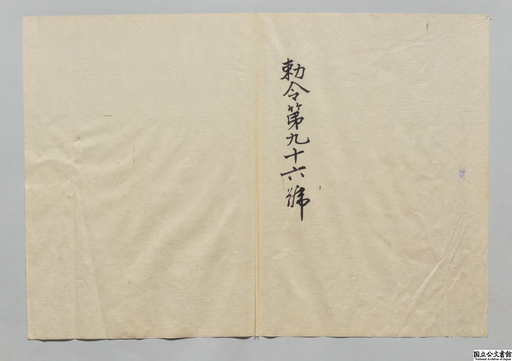 勅令第九十六號
国立公文書館
National Archives of Japan